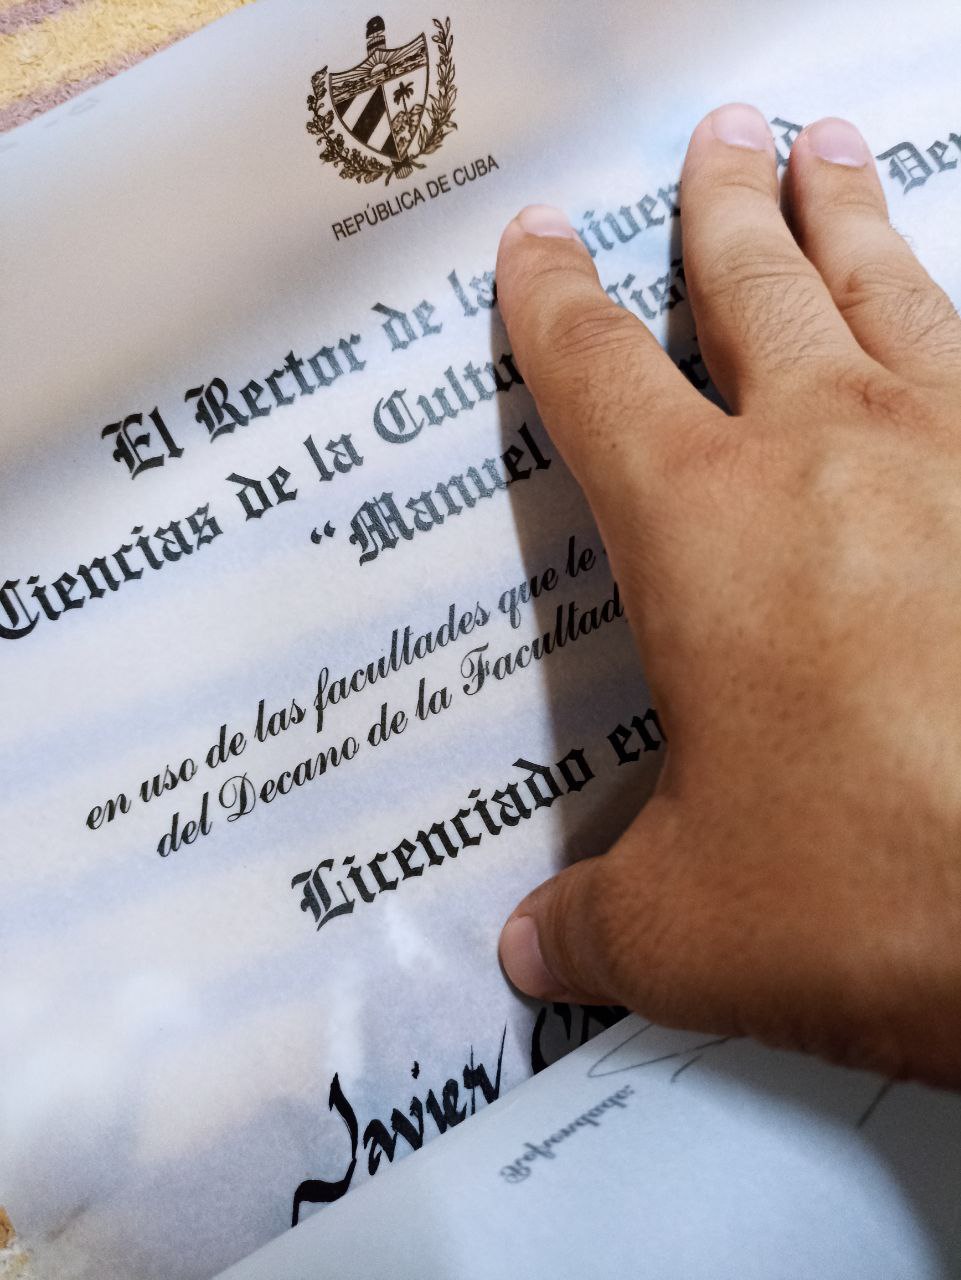 REPÚBLICA DE CUBA
El Rector de la
Ciencias de la
“Manuel
en uso de las facultades que le
del Decano de la Facultad,
Licenciado en
Javier
Refrendado: